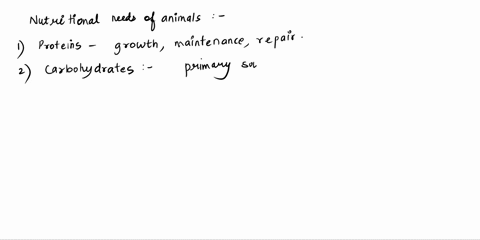 Nutritional needs of animals :-
1) Proteins - growth, maintenance, repair.
2) Carbohydrates :- primary so